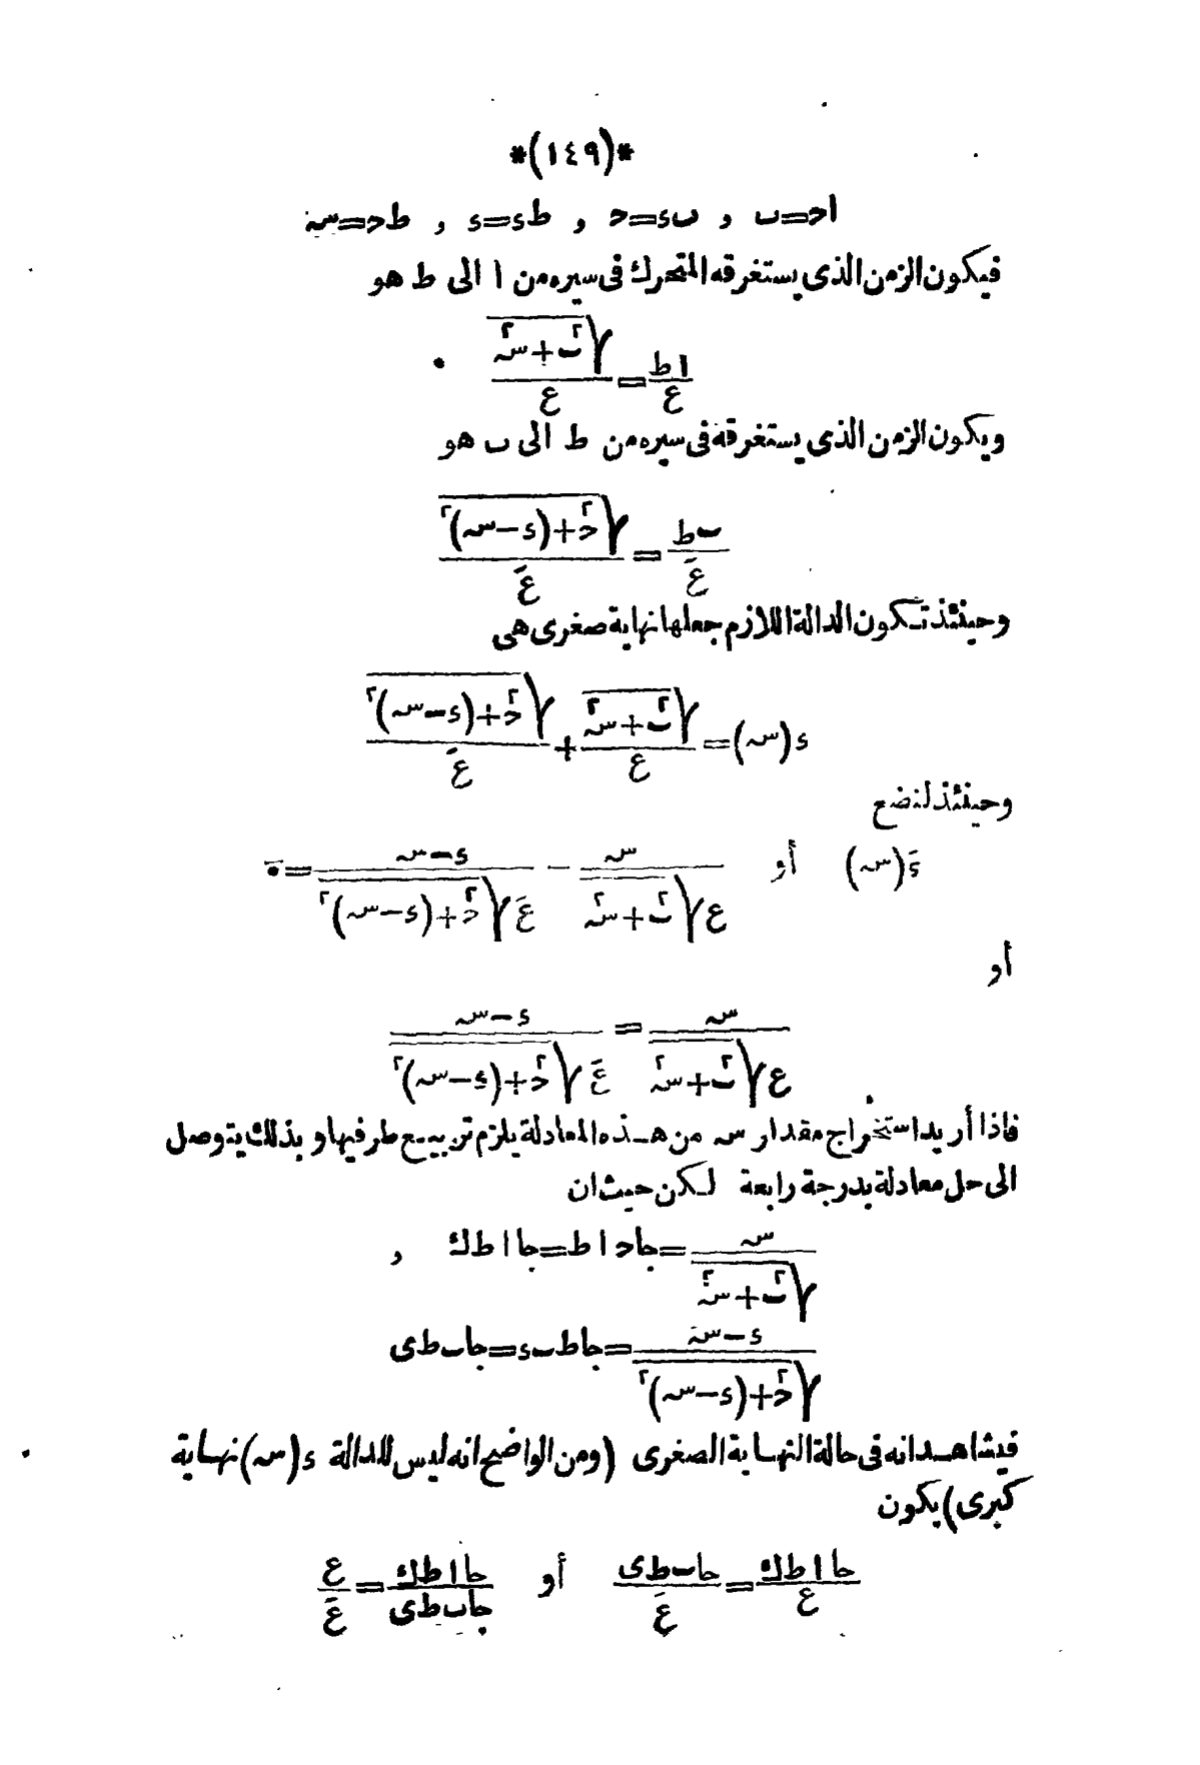 *(١٤٩)*
اح=ب و بء=ح و طء=ء و طح=سـ
فيكون الزمن الذى يستغرقه المتحرك فى سيره من ا الى ط هو
اط/ع = √(ب٢+سـ٢)/ع
ويكون الزمن الذى يستغرقه فى سيره من ط الى ب هو
ب ط/عَ = √(ح٢+(ء−سـ)٢)/عَ
وحينئذ تكون الدالة اللازم جعلها نهاية صغرى هى
ء(سـ) = √(ب٢+سـ٢)/ع + √(ح٢+(ء−سـ)٢)/عَ
وحينئذ لنضع
ءَ(سـ) أو سـ/ع√(ب٢+سـ٢) − (ء−سـ)/عَ√(ح٢+(ء−سـ)٢) = ٠
أو
سـ/ع√(ب٢+سـ٢) = (ء−سـ)/عَ√(ح٢+(ء−سـ)٢)
فاذا أريد استخراج مقدار سـ من هذه المعادلة يلزم تربيع طرفيها وبذلك يتوصل
الى حل معادلة بدرجة رابعة لكن حيث ان
سـ/√(ب٢+سـ٢) = جا ح ا ط = جا ا ط ك و
(ء−سـ)/√(ح٢+(ء−سـ)٢) = جا ط ب ء = جا ب ط ى
فيشاهد انه فى حالة النهاية الصغرى (ومن الواضح انه ليس للدالة ء(سـ) نهاية
كبرى) يكون
جا ا ط ك/ع = جا ب ط ى/عَ أو جا ا ط ك/جا ب ط ى = ع/عَ